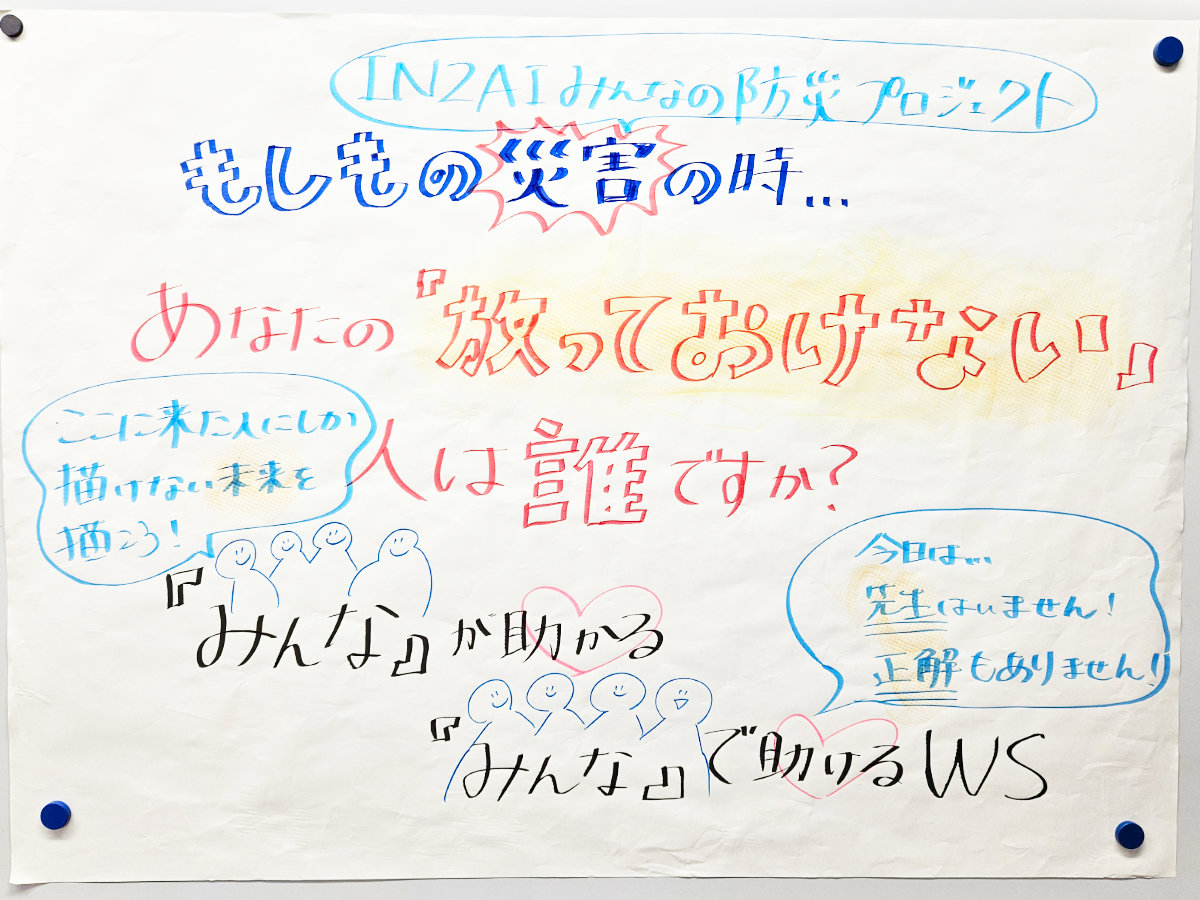 INZAIみんなの防災プロジェクト
もしもの災害の時...
あなたの『放っておけない』
人は誰ですか?
ここに来た人にしか
描けない未来を
描こう!
『みんな』が助かる
今日は...
先生はいません!
正解もありません!!
『みんな』で助けるWS